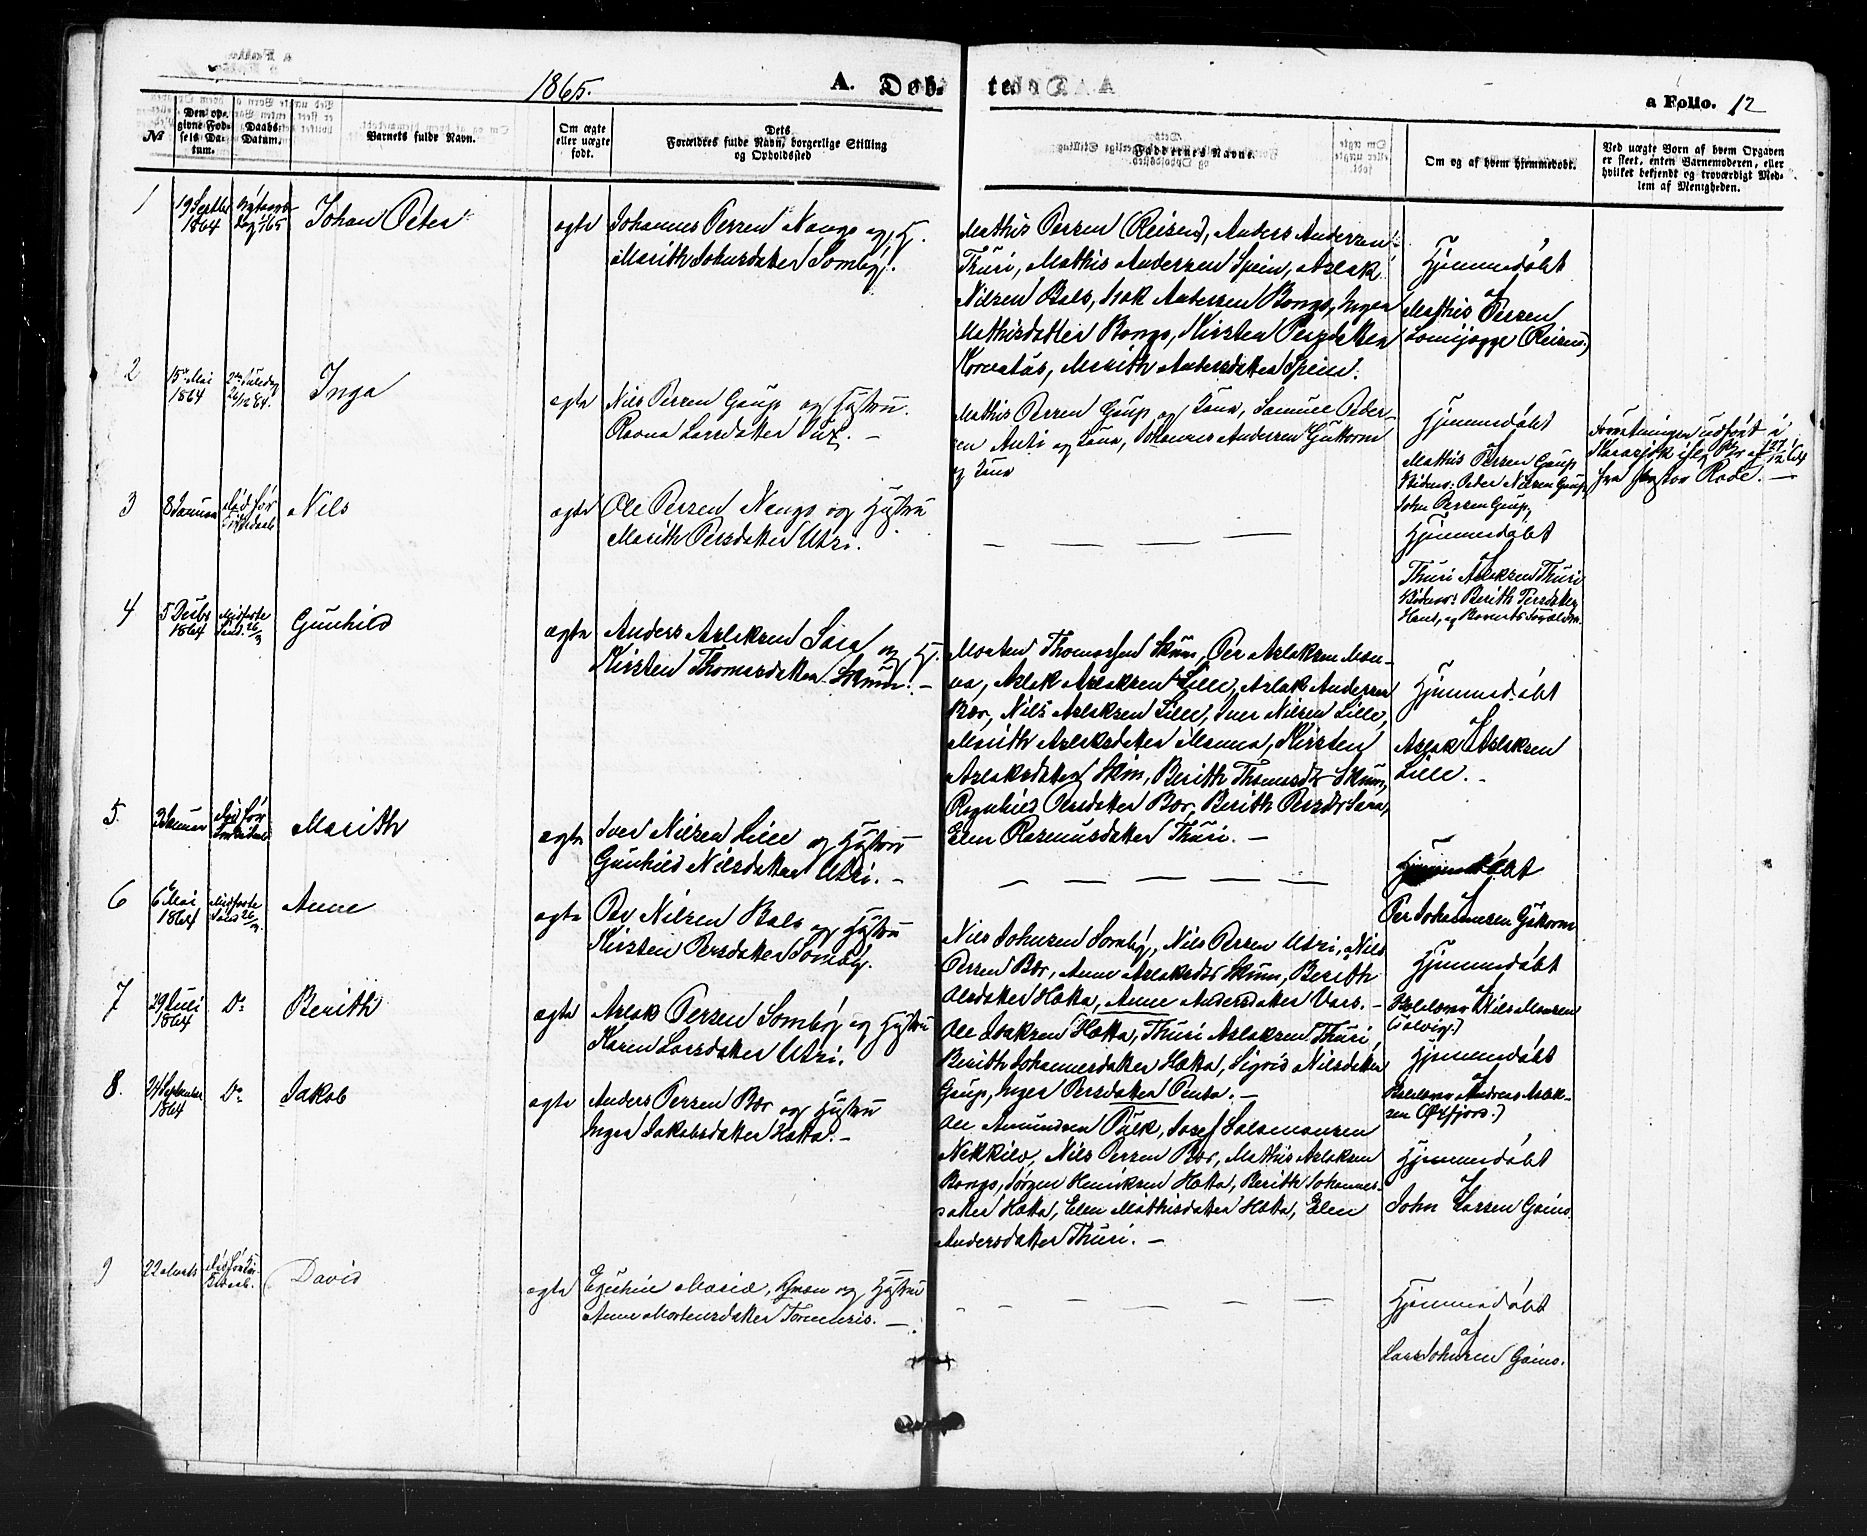 1865.
A. Døb-
te.
a Folio. 12
№
Den op-
givne Fød-
sels Da-
tum.
Daabs
Datum.
Barnets fulde Navn.
Om ægte
eller uægte
født.
Dets
Forældres fulde Navn, borgerlige Stilling
og Opholdssted
Faddernes Navne.
Om og af hvem hjemmedøbt.
Ved uægte Børn af hvem Opgaven
er skeet, enten Barnemoderen, eller
hvilket bekjendt og troværdigt Med-
lem af Menigheden.
1
19 Septbr
1864
Nytaars
Dag 1/1 65
Johan Peter
ægte
Johannes Persen Nango og H.
Marith Johnsdatter Somby.
Mathis Persen (Reisen), Anders Andersen
Thuri, Mathis Andersen Spein, Aslak
Nilsen Bals, Isak Andersen Bongo, Inger
Mathisdatter Bongo, Kirsten Persdatter
Kornatus, Marith Andersdatter Spein.
Hjemmedøbt
af
Mathis Persen
Lomijogge (Reisen)
2
15 Mai
1864
2den Juledag
26/12 64.
Inga
ægte
Nils Persen Gaup og Hustru
Ravna Larsdatter Turi. —
Mathis Persen Gaup og Kona, Samuel Peder-
sen Anti og Kona, Johannes Andersen Guttorm
og Kona
Hjemmedøbt
af
Mathis Persen Gaup
Vidner: Peder Nilsen Gaup,
John Persen Gaup,
Forretningen udført i
Karasjok iflg Br af 27/12 64
fra Pastor Rode. —
3
8 Januar
Nils
ægte
Ole Persen Nango og Hustru
Marith Persdatter Utzi.
— — — —
Hjemmedøbt
af
Thuri Aslaksen Thuri
Vidner: Berith Persdatter
4
5 Decbr
1864
Midfaste
Sønd. 26/3
Gunhild
ægte
Anders Aslaksen Sara og H.
Kirsten Thomasdatter Skum. —
Morten Thomassen Skum, Per Aslaksen Man-
na, Aslak Aslaksen Lille, Aslak Andersen
Bær, Nils Aslaksen Lille, Iver Nilsen Lille,
Marith Aslaksdatter Manna, Kirsten
Aslaksdatter Skum, Berith Thomasd: Skum,
Ragnhild Persdatter Bær, Berith Persdtr Sara,
Elen Rasmusdatter Thuri. —
Hjemmedøbt
af
Aslak Aslaksen
Lille. —
5.
3 Januar
Marith
ægte
Iver Nilsen Lille og Hustru
Gunhild Nilsdatter Utzi. —
— — — — —
Hjemmedøbt
af
Per Johannesen Gutorm
6
6 Mai
1864
Midfaste
Sønd 26/3
Anne
ægte
Per Nilsen Bals og Hustru
Kirsten Persdatter Somby.
Nils Johnsen Somby, Nils Persen Utzi, Nils
Persen Bær, Anne Aslaksdtr Skum, Berith
Olsdatter Hætta, Anne Andersdatter Vars. —
Hjemmedøbt
af
Skolelærer Nils Monsen
(Talvig.)
7
29 Juli
1864
Do
Berith
ægte
Aslak Persen Somby og Hustru
Karen Larsdatter Utzi.
Ole Isaksen Hætta, Thuri Aslaksen Thuri,
Berith Johannesdatter Hætta, Sigrid Nilsdatter
Gaup, Inger Persdatter Penta. —
Hjemmedøbt
af
Skolelærer Andreas Aslak-
sen (Øxfjord.)
8.
24 September
1864
Do
Jakob
ægte
Anders Persen Bær og Hustru
Inger Jakobsdatter Hætta. —
Ole Amundsen Pulk, Josef Salamonsen
Nekkilo, Nils Persen Bær, Mathis Aslaksen
Bongo, Jørgen Henriksen Hætta, Berith Johannes-
datter Hætta, Elen Mathisdatter Hætta, Elen
Andersdatter Thuri. —
Hjemmedøbt
af
John Larsen Gaino.
9
22 Marts
David
ægte
Anne Mortensdatter Tornensis. —
— — — — —
Hjemmedøbt
af
Lars Johnsen Gaino.